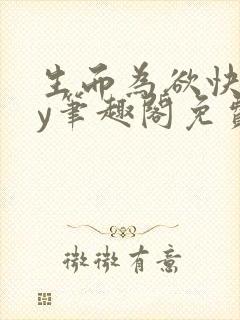 生而为欲快
y筆趣閣免費
微微有意